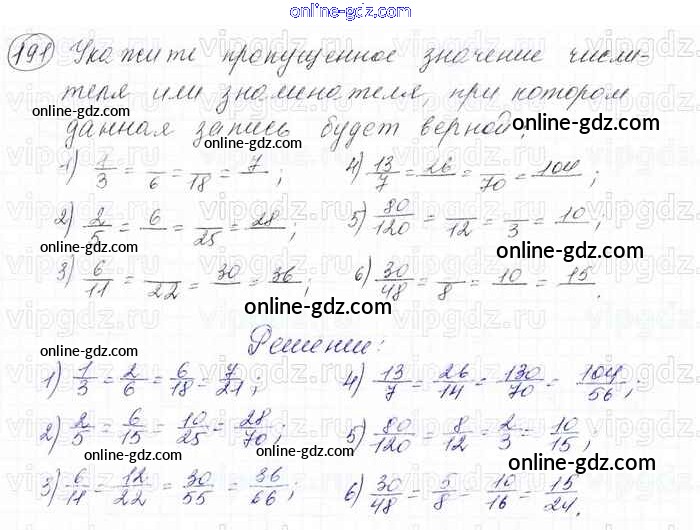 online-gdz.com
191 Укажите пропущенное значение числи-
теля или знаменателя, при котором
данная запись будет верной:
online-gdz.com
1) 1/3 = /6 = /18 = 7/ ; 4) 13/7 = 26/ = /70 = 104/ ;
online-gdz.com online-gdz.com
2) 2/5 = 6/ = /25 = 28/ ; 5) 80/120 = /12 = /3 = 10/ ;
online-gdz.com online-gdz.com
3) 6/11 = /22 = 30/ = 36/ ; 6) 30/48 = /8 = 10/ = 15/ .
online-gdz.com
Решение:
online-gdz.com
1) 1/3 = 2/6 = 6/18 = 7/21 ; 4) 13/7 = 26/14 = 130/70 = 104/56 ;
online-gdz.com
2) 2/5 = 6/15 = 10/25 = 28/70 ; 5) 80/120 = 8/12 = 2/3 = 10/15 ;
online-gdz.com online-gdz.com
3) 6/11 = 12/22 = 30/55 = 36/66 ; 6) 30/48 = 5/8 = 10/16 = 15/24 .
online-gdz.com